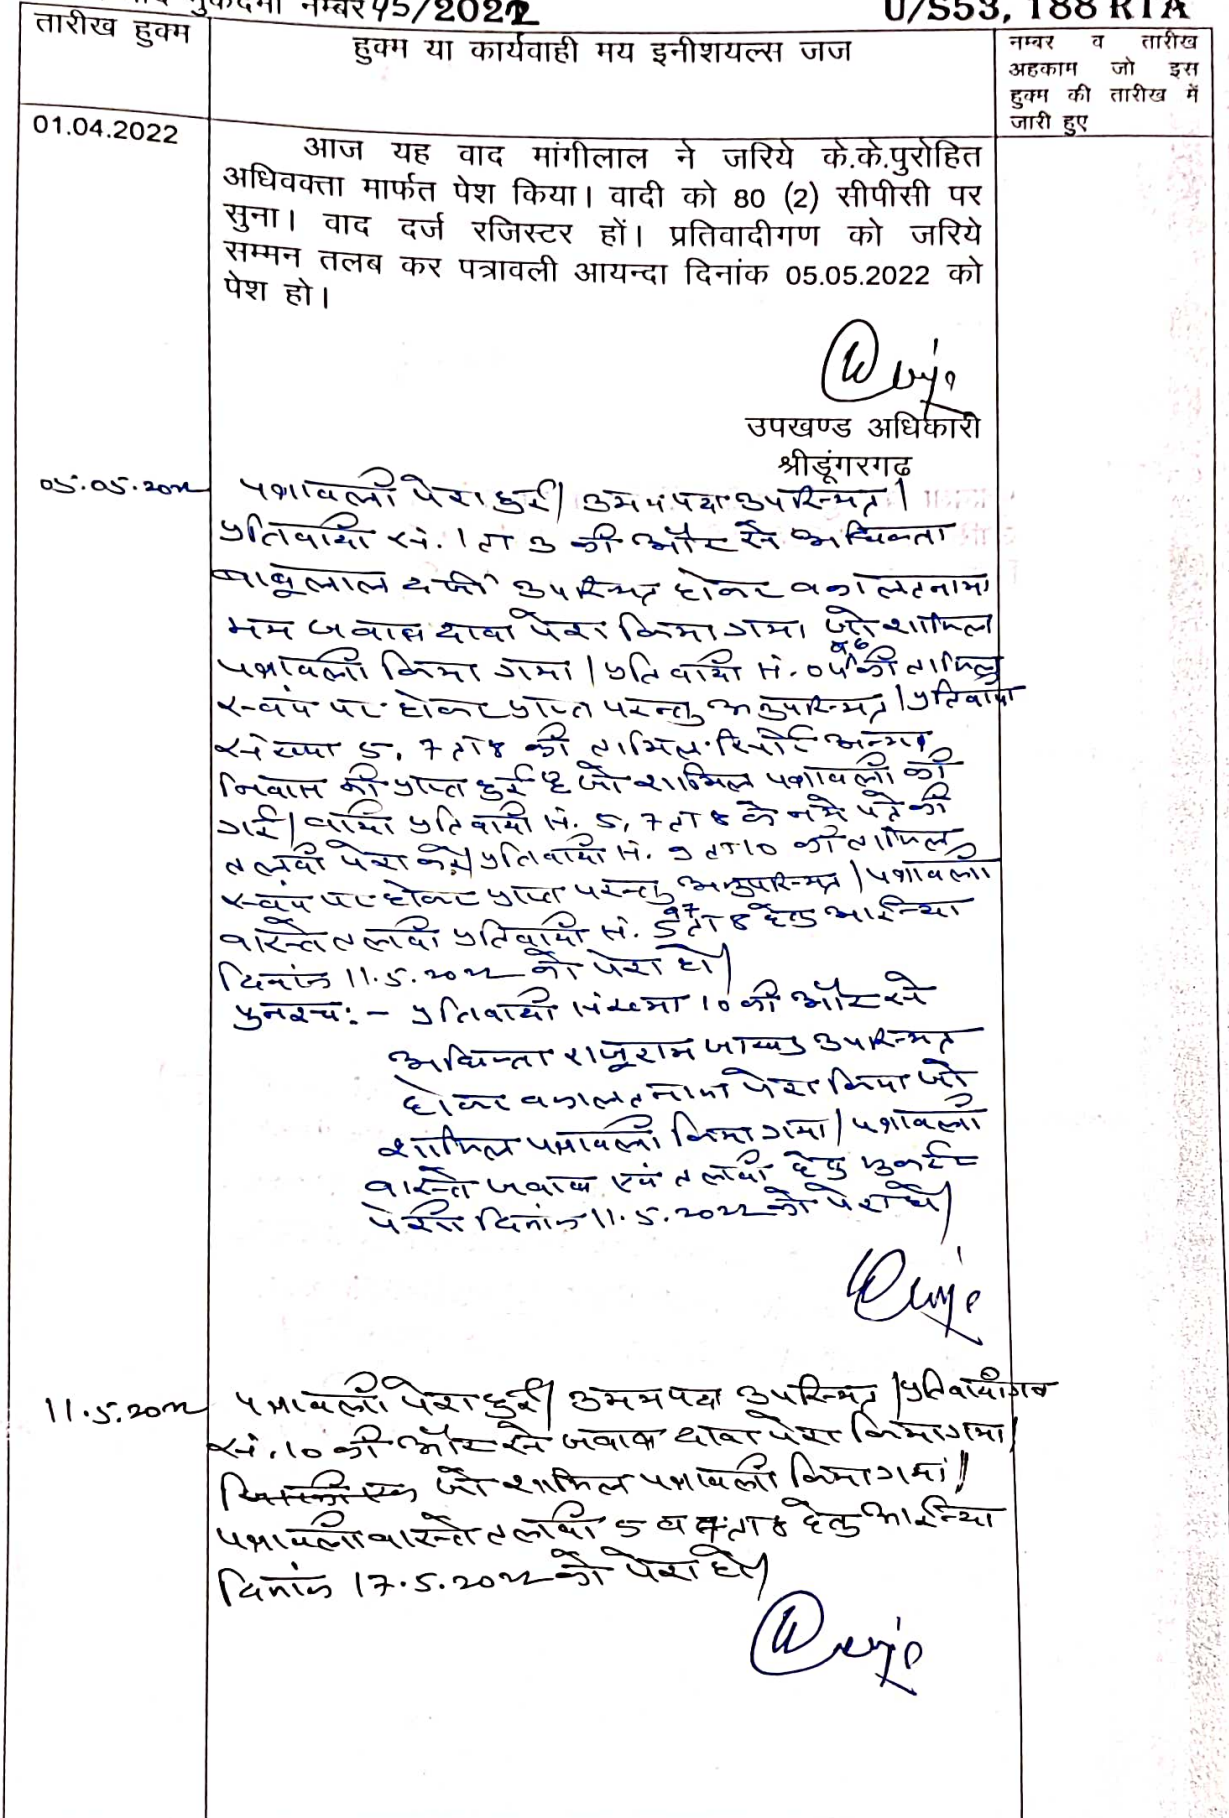 मुकदमा नम्बर 45/2022 U/S53, 188 RTA
तारीख हुक्म
हुक्म या कार्यवाही मय इनीशयल्स जज
नम्बर व तारीख
अहकाम जो इस
हुक्म की तारीख में
जारी हुए
01.04.2022
आज यह वाद मांगीलाल ने जरिये के.के.पुरोहित
अधिवक्ता मार्फत पेश किया। वादी को 80 (2) सीपीसी पर
सुना। वाद दर्ज रजिस्टर हों। प्रतिवादीगण को जरिये
सम्मन तलब कर पत्रावली आयन्दा दिनांक 05.05.2022 को
पेश हो।
उपखण्ड अधिकारी
श्रीडूंगरगढ़
05.05.2022 पत्रावली पेश हुई। उभय पक्ष उपस्थित।
प्रतिवादी सं. 1 ता 3 की ओर से अधिवक्ता
बाबूलाल दर्जी उपस्थित होकर वकालतनामा
मय जवाब दावा पेश किया गया जो शामिल
पत्रावली किया गया। प्रतिवादी सं. 04 व 6 की तामिल
स्वयं पर होकर प्राप्त परन्तु अनुपस्थित। प्रतिवादी
संख्या 5, 7 ता 8 की तामिल रिपोर्ट अन्यत्र
निवास की प्राप्त हुई है जो शामिल पत्रावली की
गई। वादी प्रतिवादी सं. 5, 7 ता 8 के नये पते की
तलबी पेश करें। प्रतिवादी सं. 9 ता 10 की तामिल
स्वयं पर होकर प्राप्त परन्तु अनुपस्थित। पत्रावली
वास्ते तलबी प्रतिवादी सं. 5 व 7 ता 8 हेतु आईन्दा
दिनांक 11.5.2022 को पेश हो।
पुनश्च:- प्रतिवादी संख्या 10 की ओर से
अधिवक्ता राजूराम जाखड़ उपस्थित
होकर वकालतनामा पेश किया जो
शामिल पत्रावली किया गया। पत्रावली
वास्ते जवाब एवं तलबी हेतु मुकर्रर
पेशी दिनांक 11.5.2022 को पेश हो।
11.5.2022 पत्रावली पेश हुई। उभय पक्ष उपस्थित। प्रतिवादीगण
सं. 10 की ओर से जवाब दावा पेश किया गया।
जो शामिल पत्रावली किया गया।
पत्रावली वास्ते तलबी 5 व 7 ता 8 हेतु आईन्दा
दिनांक 17.5.2022 को पेश हो।